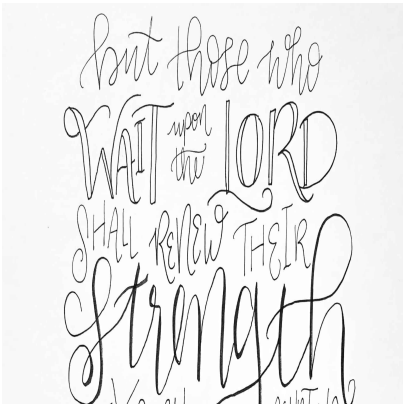 but those who
WAIT upon the LORD
SHALL RENEW THEIR
strength